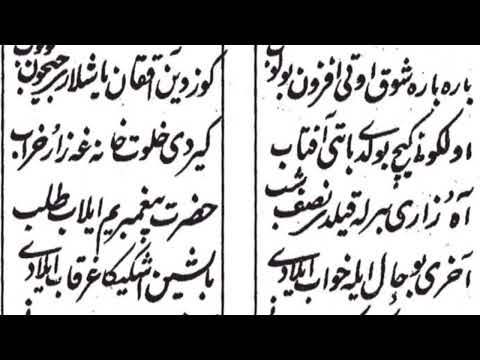 باره باره شوق اوتی افزون بولوب کوزدین آققان یاشلار جیحون
اولکون کیچ بولدی باتتی آفتاب کیردی خلوت خانه غه زار خراب
آه زاری بیرله قیلدی نصف شب حضرت پیغمبریم ایلاب طلب
آخری بو حال ایله خواب ایلادی باشین اشکیکا غرقاب ایلادی